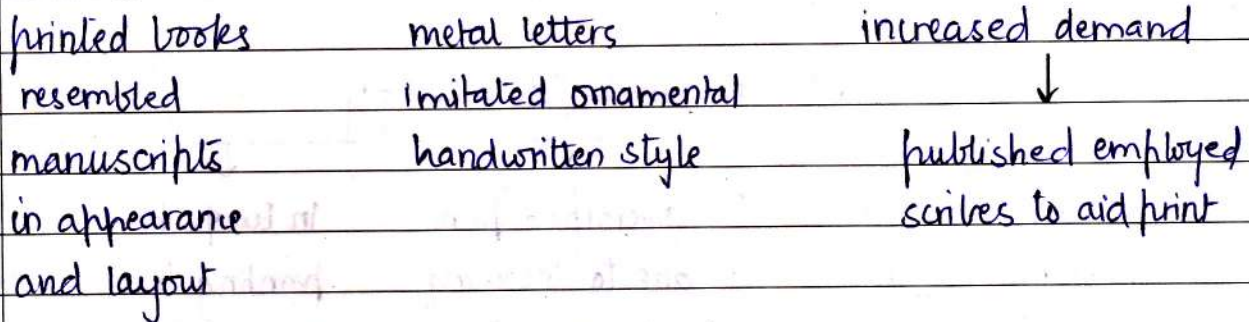 printed books
resembled
manuscripts
in appearance
and layout
metal letters
imitated ornamental
handwritten style
increased demand
↓
published employed
scribes to aid print